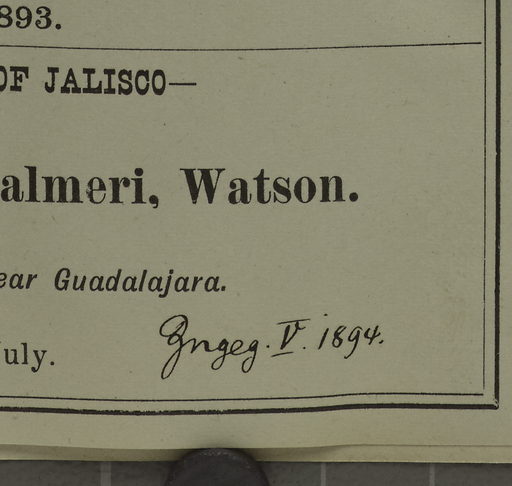 893.
OF JALISCO—
almeri, Watson.
ear Guadalajara.
July.
Ingeg. V. 1894.